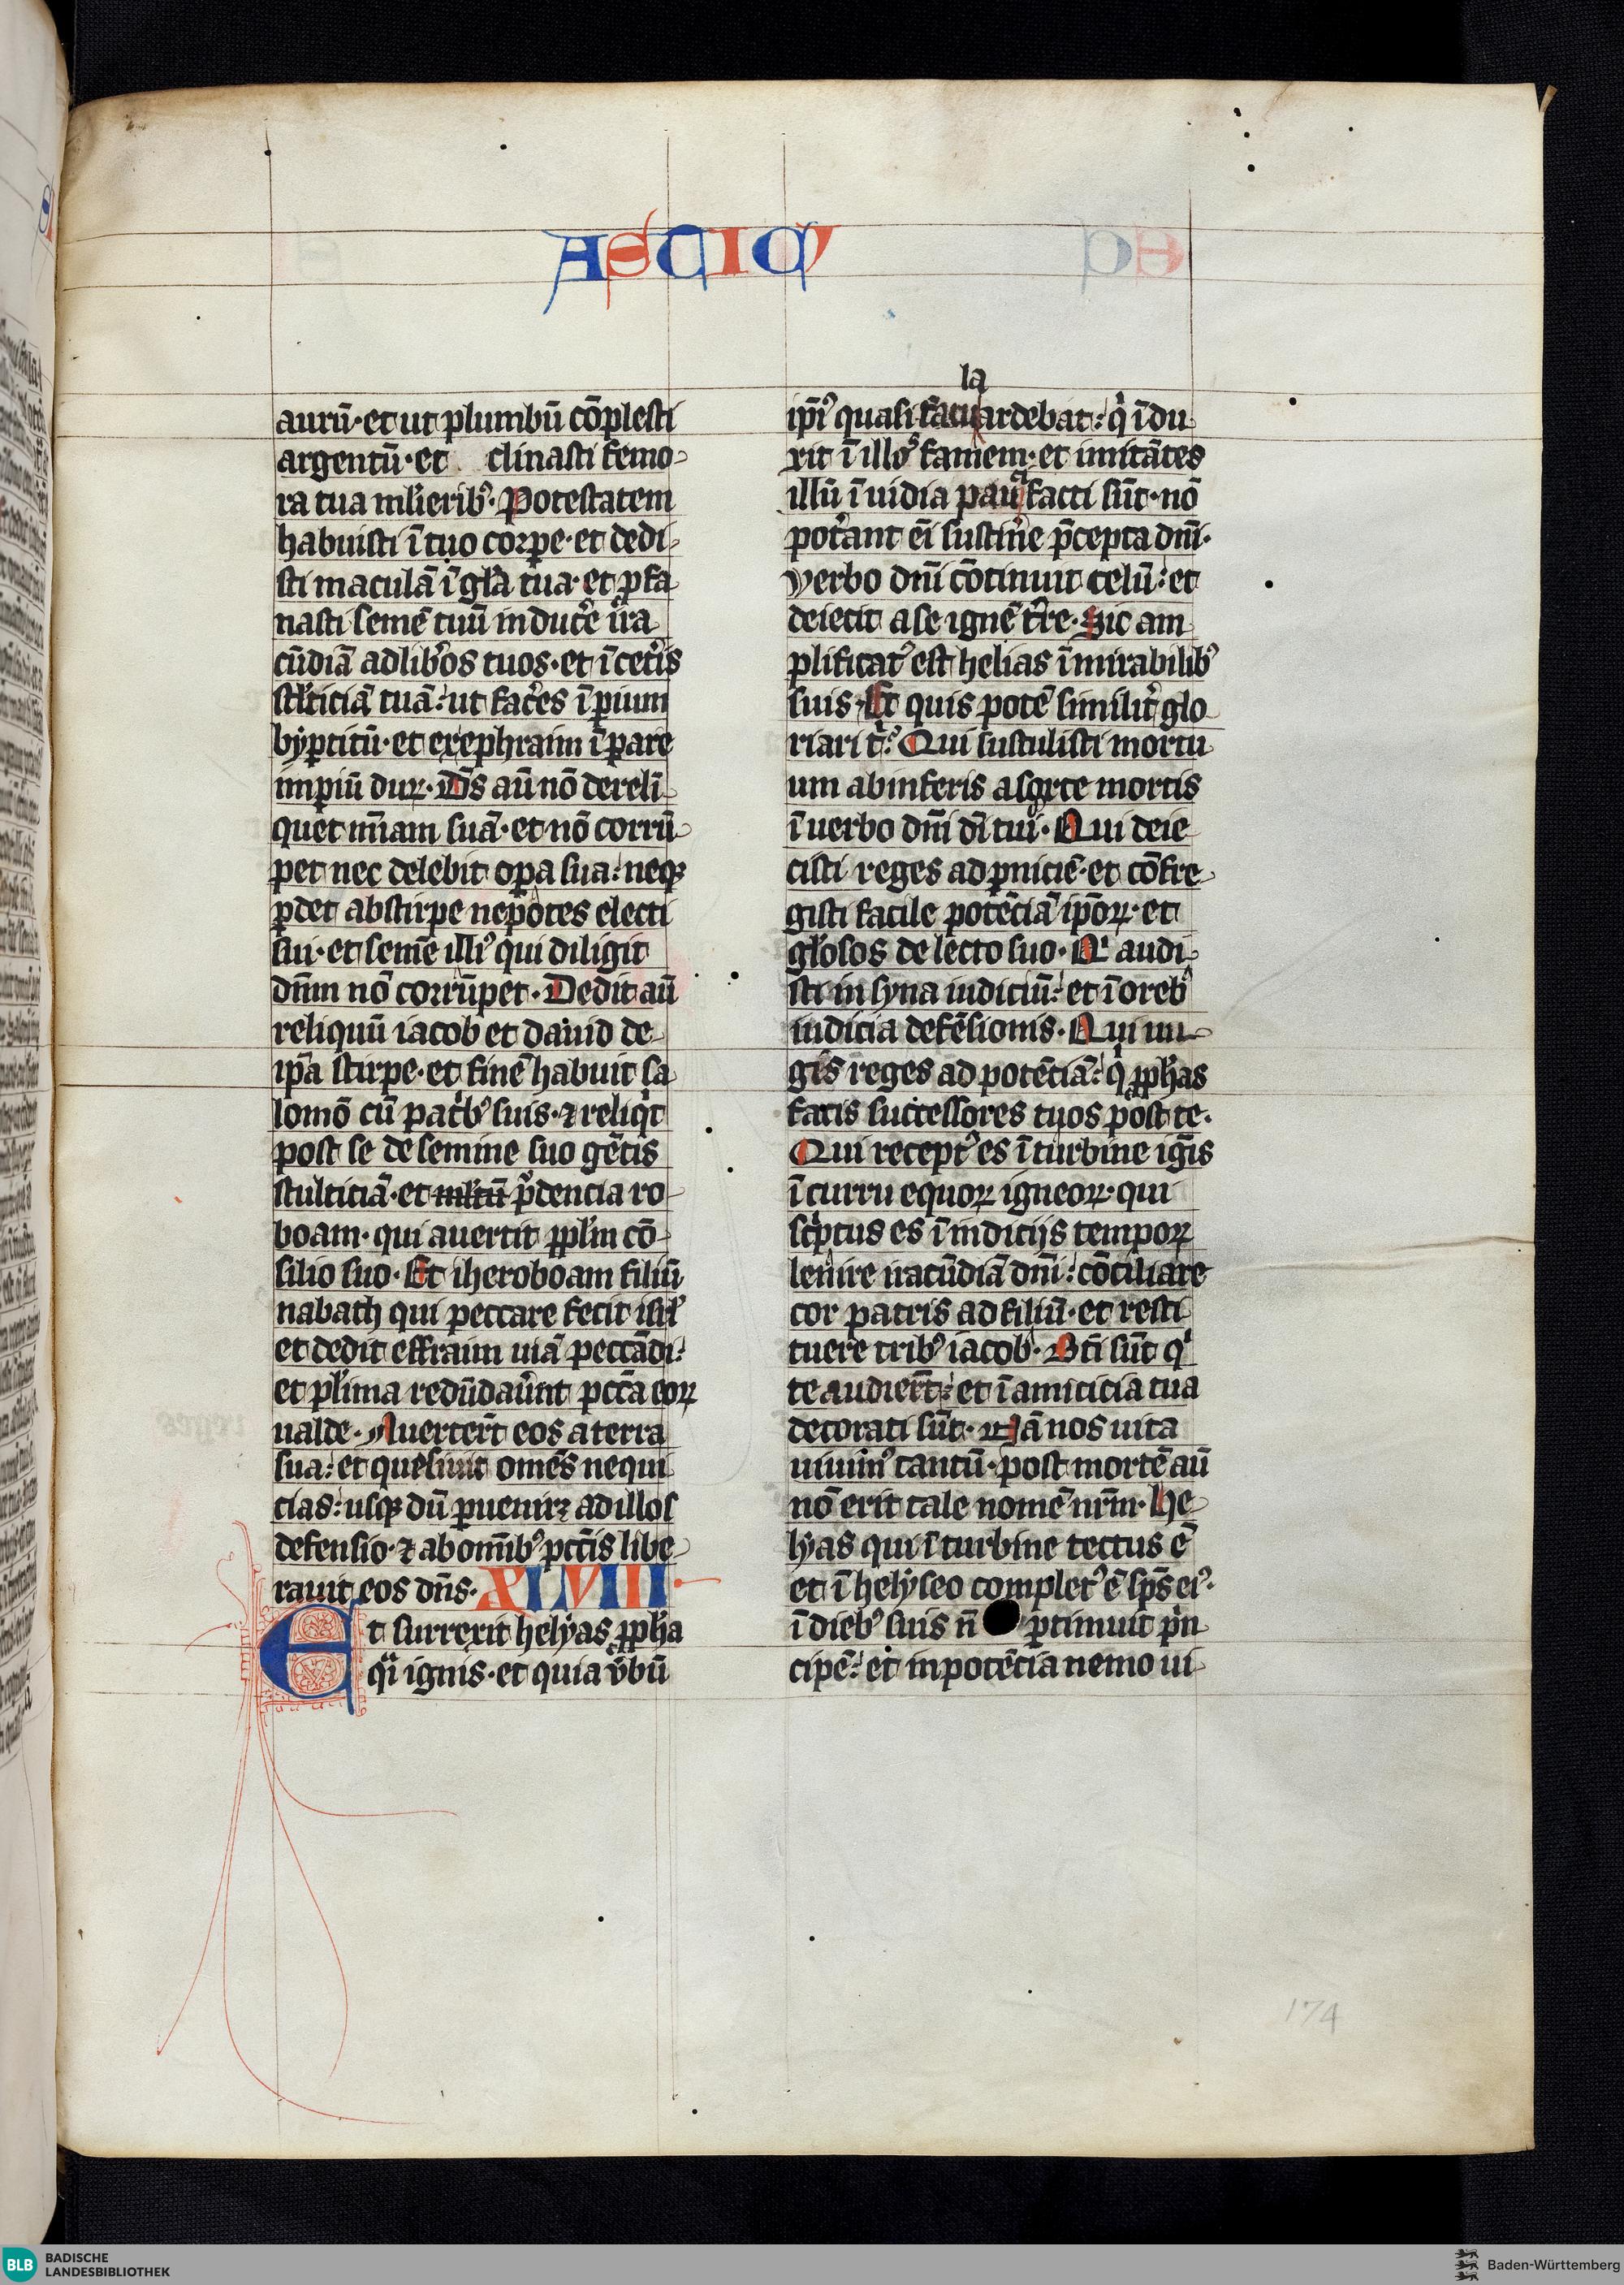 ASTICꝰ
aurū·et ut plumbū cōplesti
argentū·et clinasti femo-
ra tua mlieribꝰ· Potestatem
habuisti ī tuo corpe·et dedi-
sti maculā ī glā tua·et ꝓfa-
nasti semē tuū inducͬe ira
cūdiā ad libͬos tuos·et ī cetͬis
stlticiā tuā: ut facͬes īpium
byꝑtitū·et ex ephraim īpare
impiū duꝝ· Ds̄ aū nō dereli-
quet mīam suā·et nō corrū-
pet nec delebit opa sua: neqꝫ
ꝑdet ab stirpe nepotes electi
sui·et semē illiꝰ qui diligit
dn̄m nō corrūpet· Dedit aū
reliquū iacob et dauid de-
ip̄a stirpe·et finē habuit sa-
lomō cū patͥbꝰ suis·⁊ reliqͥt
post se de semine suo gētis
stulticiā·et pͮdencia ro-
boam·qui auertit ꝓplm cō-
silio suo· Et iheroboam filiū
nabath qui peccare fecit isrl
et dedit effraim uiā peccādi:
et pl̄ima redūdauͤnt pccā eoꝝ
ualde· Auertert̄ eos a terra
sua: et quesiuit om̄es nequi-
cias: usqꝫ dū ꝑueniꝫ ad illos
defensio·⁊ ab om̄ibꝰ pcc̄is libe-
rauit eos dn̄s· XLVIII·
Et surrexit helyas ꝓpha
qͣi ignis·et quia v̄bū
la
ip̄iꝰ quasi facu ardebat: qͥ īdu-
xit ī illos famem·et imitātes
illū īuidia pauͣ facti sūt·nō
potͬant eī sustinͬe p̄cepta dn̄i·
Verbo dn̄i cōtinuit celū: et
deiecit a se ignē tr̄re· Sic am-
plificatꝰ est helias ī mirabilibꝰ
suis· Et quis potē similitͬ glo-
riari tͥ? Qui sustulisti mortu-
um ab inferis a sorte mortis
ī uerbo dn̄i dī tui· Qui deie-
cisti reges ad ꝑniciē·et cōfre-
gisti facile potēciā ip̄oꝝ·et
gl̄osos de lecto suo· Qͥ audi-
sti in syna iudiciū: et ī orebͥ
iudicia defēsionis· Qui un-
gis reges ad potēciā: qͥ ꝓphas
facis successores tuos post te·
Qui receptꝰ es ī turbine ignis
ī curru equoꝝ igneoꝝ· qui
scͥptus es ī indicijs tempoꝝ
lenire iracūdiā dn̄i: cōciliare
cor patris ad filiū·et resti-
tuere tribꝰ iacob· Bt̄i sūt qͥ
te audiert̄: et ī amicicia tua
decorati sūt· Nā nos uita
uiuimꝰ tantū· post mortē aū
nō erit tale nomē nr̄m· He-
lyas qui ī turbine tectus ē
et ī helyseo completꝰ ē sp̄s eiꝰ·
ī diebꝰ suis n̄ ꝑtimuit pͥn-
cipē: et in potēcia nemo ui-
174
BLB
BADISCHE
LANDESBIBLIOTHEK
Baden-Württemberg